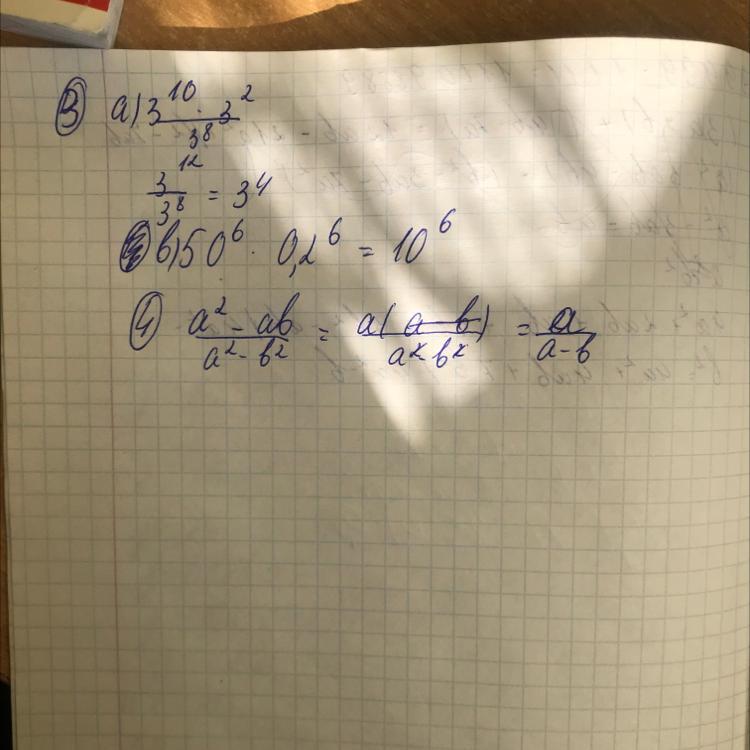 3 а) 3^10 · 3^2 / 3^8
3^12 / 3^8 = 3^4
в) 50^6 · 0,2^6 = 10^6
4 a^2 - ab / a^2 - b^2 = a(a - b) / a^2 - b^2 = a / a - b